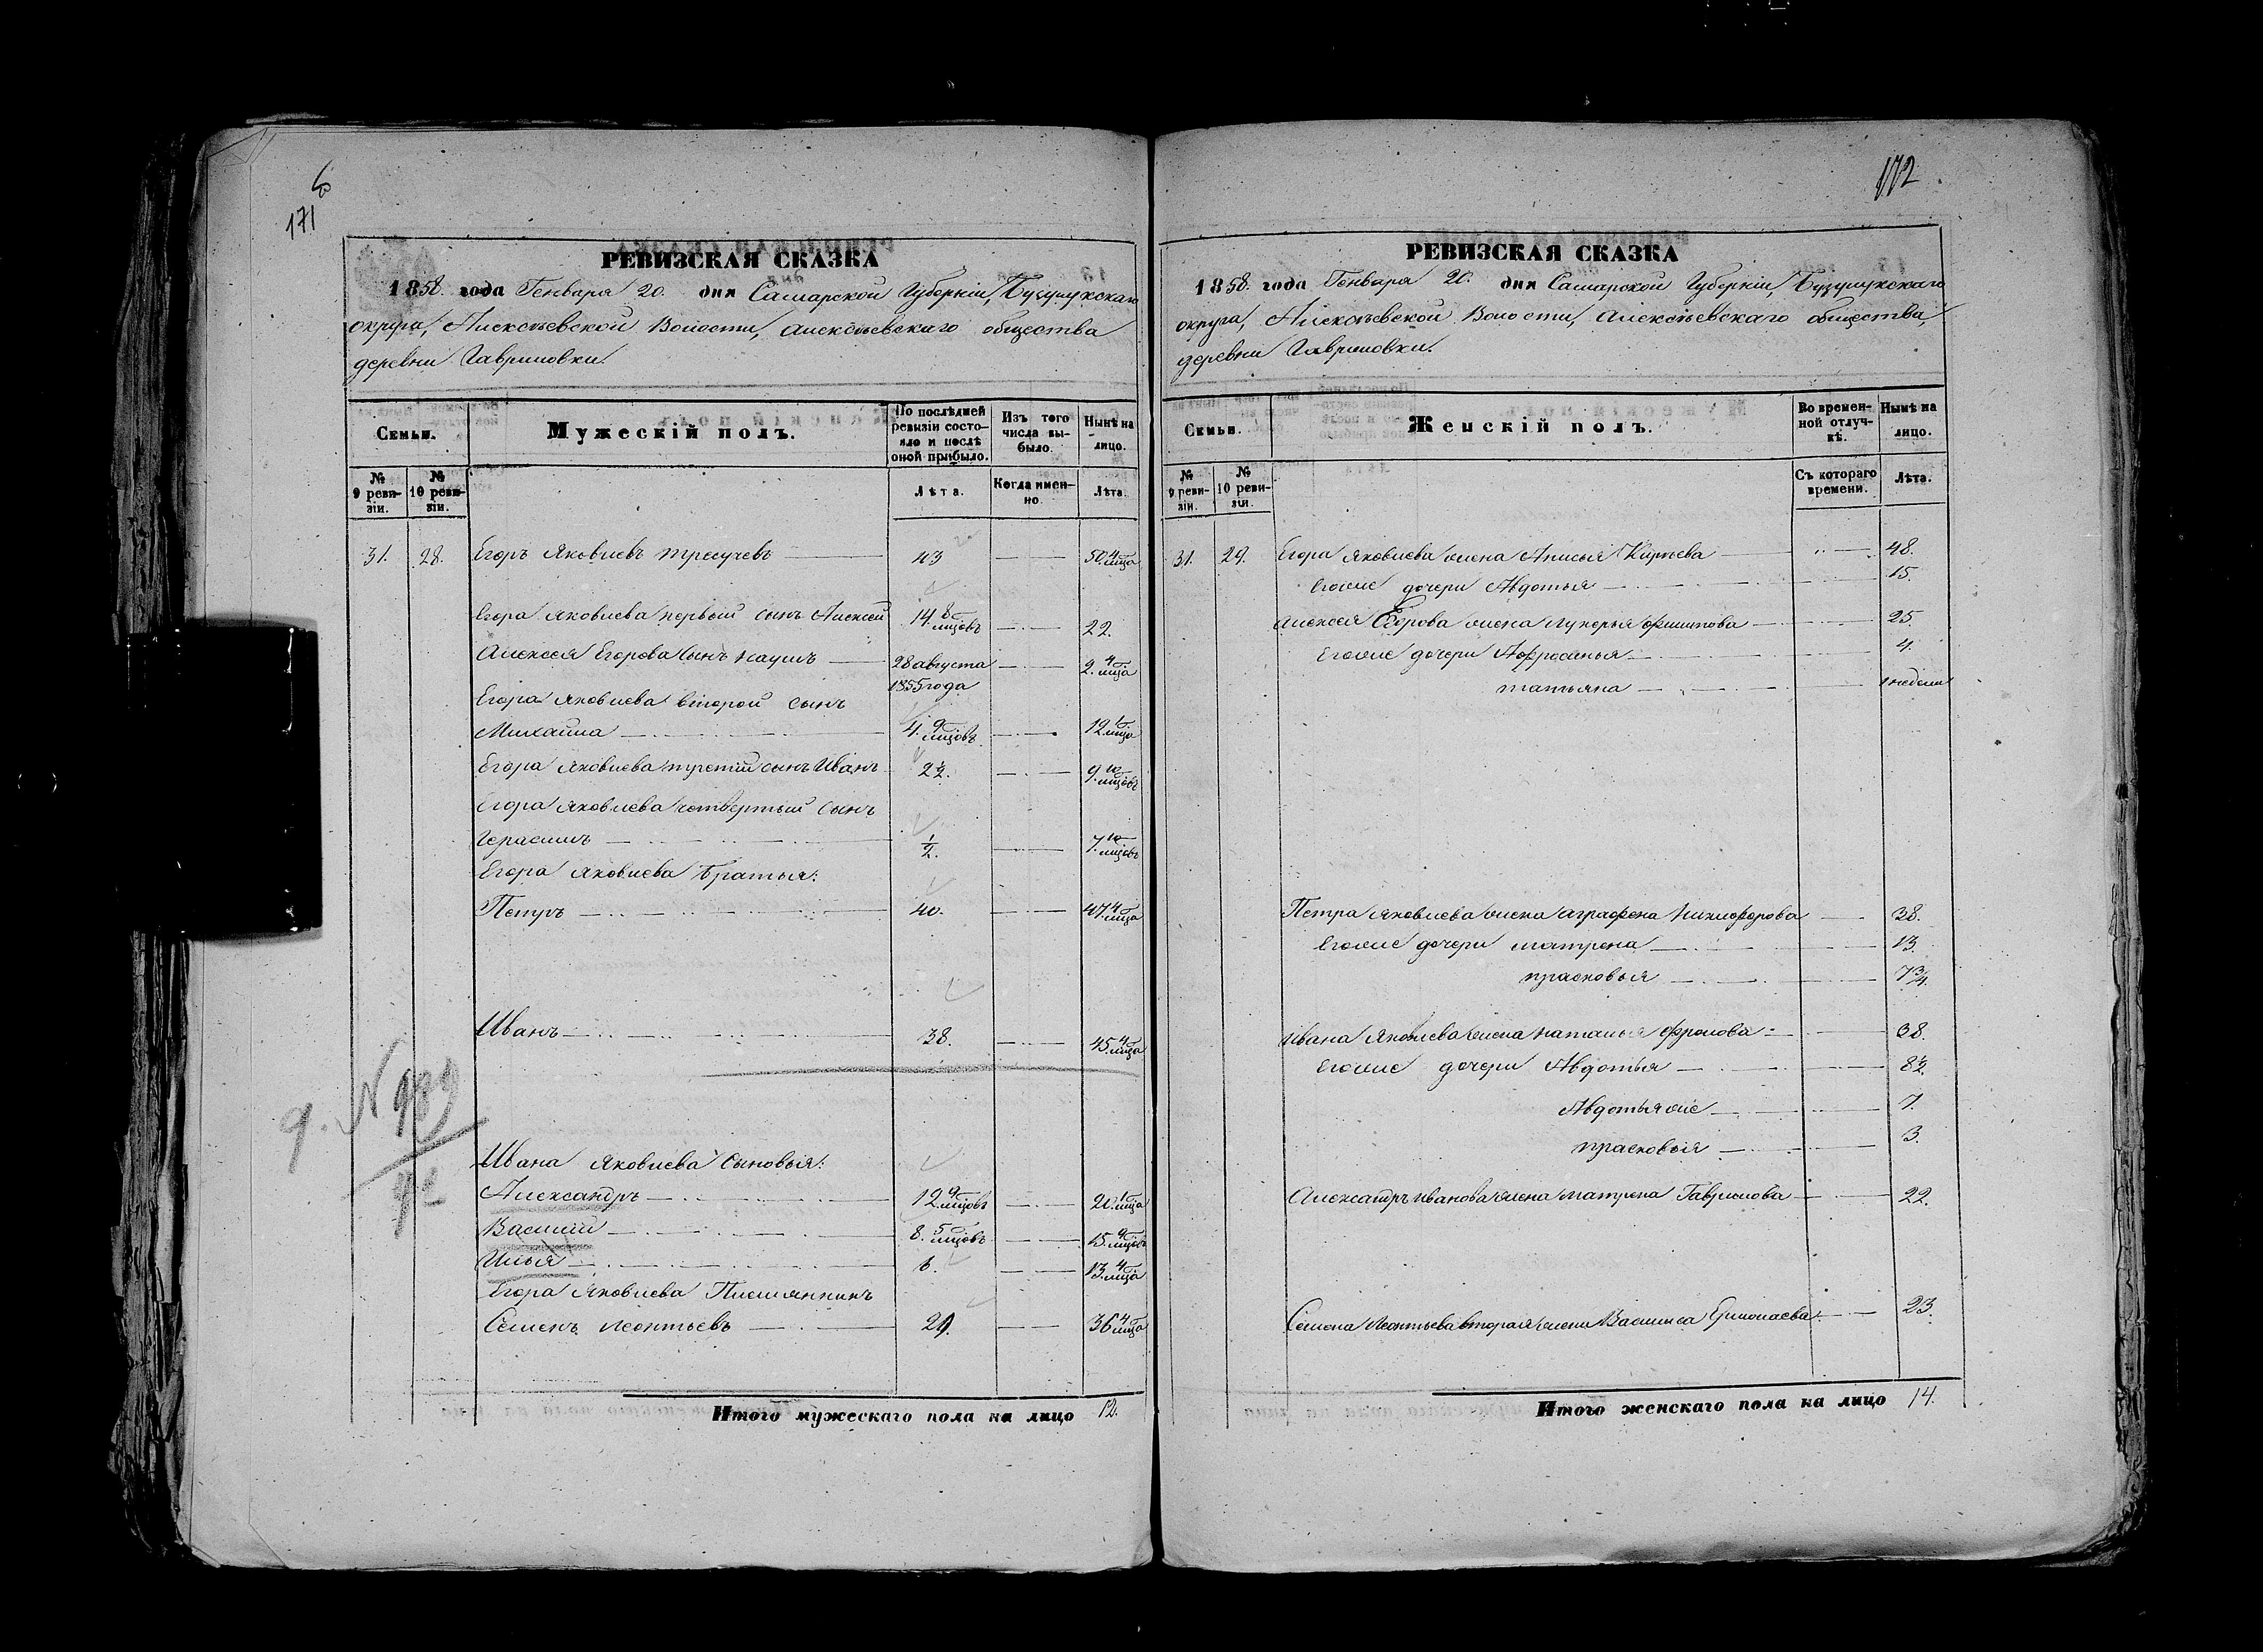 6
171
РЕВИЗСКАЯ СКАЗКА
1858. года Генваря 20. дня Самарской Губернiи, Бузулукскаго
округа, Алексѣевской Волости, Алексѣевскаго общества
деревни Гавриловки.
Семьи.
Мужескiй полъ.
По послѣдней ревизiи состояло и послѣ оной прибыло.
Изъ того числа выбыло.
Нынѣ на лицо.
№ 9 ревизiи.
№ 10 ревизiи.
Лѣта.
Когда именно.
Лѣта.
31. 28. Егоръ Яковлевъ 43 50. 4 мѣца
Егора Яковлева первый сынъ Алексѣй 14. 8 мѣцовъ 22.
Алексѣя Егорова сынъ Наумъ 28 августа 1855 года 2. 4 мѣца
Егора Яковлева второй сынъ
Михайла 4. 9 мѣцовъ 12. 1 мѣца
Егора Яковлева третiй сынъ Иванъ 2½. 9. 10 мѣцовъ
Егора Яковлева четвертый сынъ
Герасимъ ½. 7. 10 мѣцовъ
Егора Яковлева братья:
Петръ 40. 47. 4 мѣца
Иванъ 38. 45. 4 мѣца
Ивана Яковлева сыновья:
Александръ 12. 9 мѣцовъ 20. 1 мѣца
Василiй 8. 5 мѣцовъ 15. 9 мѣцовъ
Илья 6. 13. 4 мѣца
Егора Яковлева Племянникъ
Семенъ Леонтьевъ 29. 36. 4 мѣца
Итого мужескаго пола на лицо 12.
172
РЕВИЗСКАЯ СКАЗКА
1858. года Генваря 20. дня Самарской Губернiи, Бузулукскаго
округа, Алексѣевской Волости, Алексѣевскаго общества,
деревни Гавриловки.
Семьи.
Женскiй полъ.
Во временной отлучкѣ.
Нынѣ на лицо.
№ 9 ревизiи.
№ 10 ревизiи.
Съ котораго времени.
Лѣта.
31. 29. Егора Яковлева жена Анисья Карпева 48.
Егоже дочери Авдотья 15.
Алексѣя Егорова жена Лукерья Филипова 25.
Егоже дочери Афросинья 4.
Татьяна 1 недели
Петра Яковлева жена Аграфена Никифорова 38.
Егоже дочери Матрена 13.
Прасковья 7¾.
Ивана Яковлева жена Наталья Фролова 38.
Егоже дочери Авдотья 8½.
Авдотья же 7.
Прасковья 3.
Александръ Иванова жена Матрена Гаврилова 22.
Семена Леонтьева вторая жена Василиса Ермолаева 23.
Итого женскаго пола на лицо 14.